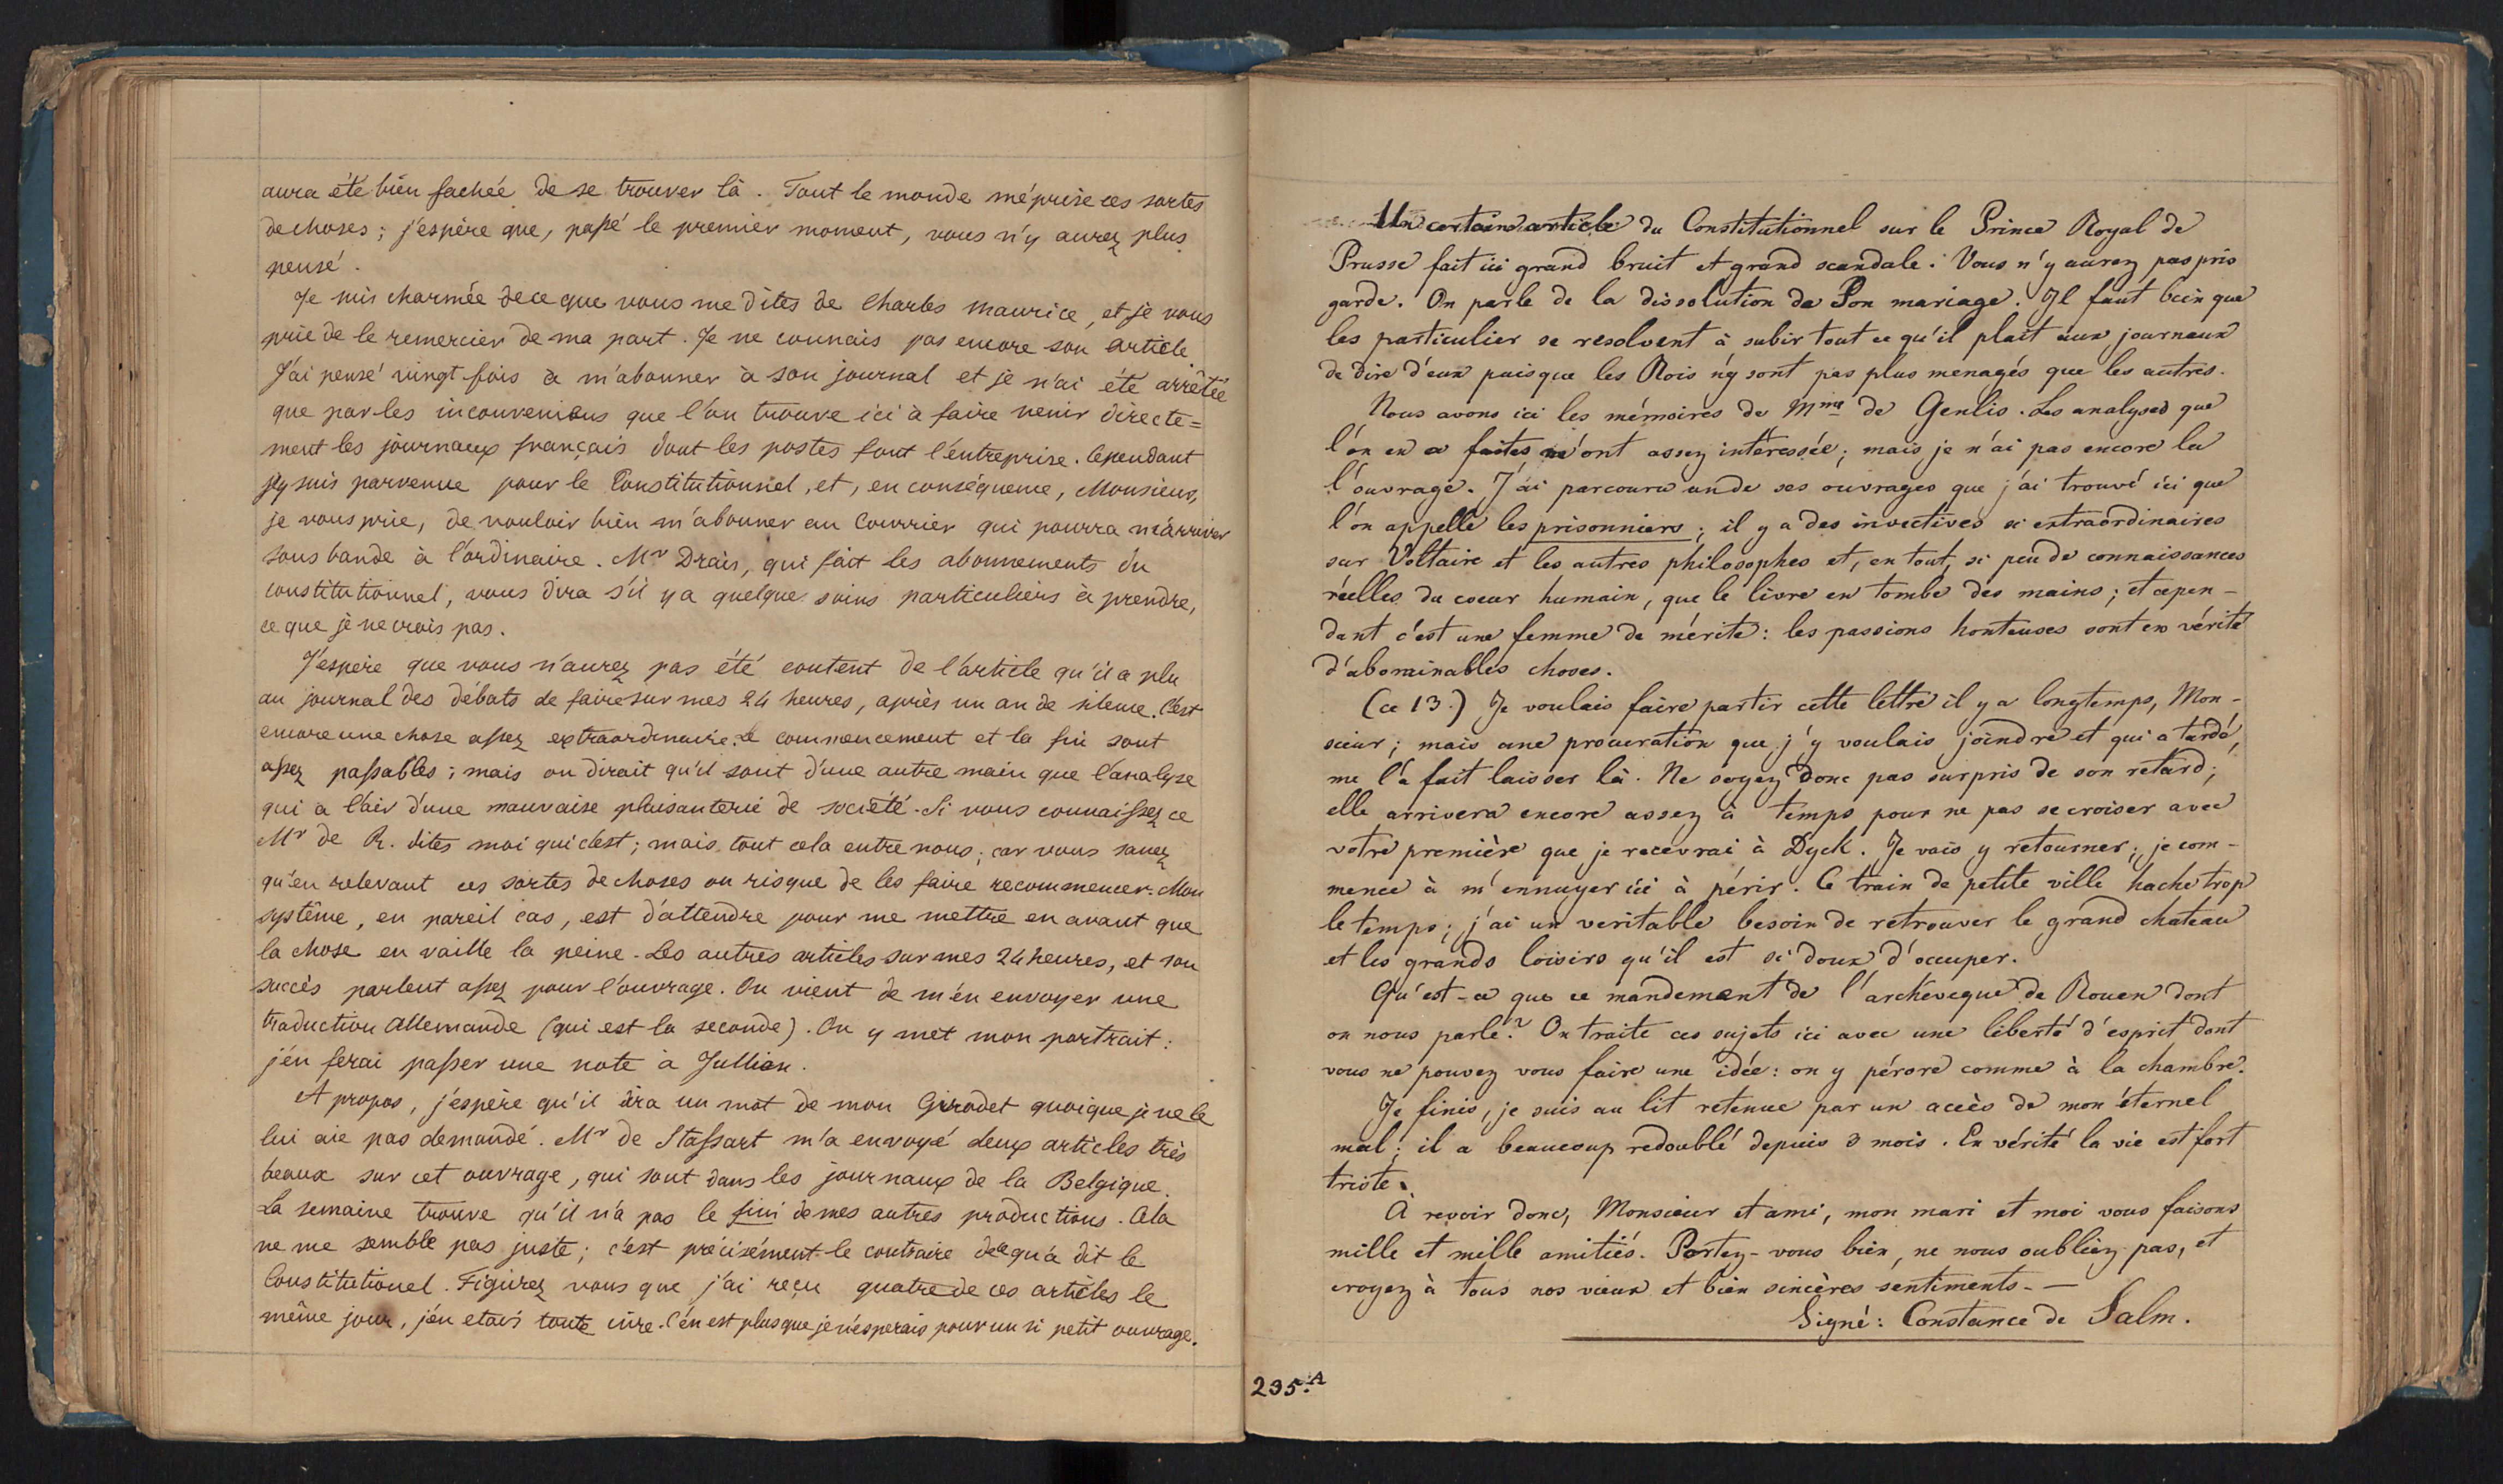 aura été bien fachée de se trouver là. Tout le monde méprise ces sortes
de choses; j'espère que, passé le premier moment, vous n'y aurez plus
pensé.
Je suis charmée de ce que vous me dites de Charles Maurice, et je vous
prie de le remercier de ma part. Je ne connais pas encore son article.
J'ai pensé vingt fois à m'abonner à son journal et je n'ai été arrêtée
que par les inconveniens que l'on trouve ici à faire venir directe=
ment les journaux français dont les postes font l'entreprise. Cependant
j'y suis parvenue pour le Constitutionnel, et, en conséquence, Monsieur,
je vous prie, de vouloir bien m'abonner au Courrier qui pourra m'arriver
sous bande à l'ordinaire. Mr Drais, qui fait les abonnements du
constitutionnel, vous dira s'il y a quelque soins particuliers à prendre,
ce que je ne crois pas.
J'espère que vous n'aurez pas été content de l'article qu'il a plu
au journal des débats de faire sur mes 24 heures, après un an de silence. C'est
encore une chose assez extraordinaire. Le commencement et la fin sont
assez passables; mais on dirait qu'il sont d'une autre main que l'analyse
qui a l'air d'une mauvaise plaisanterie de société. Si vous connaissez ce
Mr de R. dites moi qui c'est; mais tout cela entre nous; car vous savez
qu'en relevant ces sortes de choses on risque de les faire recommencer. Mon
système, en pareil cas, est d'attendre pour me mettre en avant que
la chose en vaille la peine. Les autres articles sur mes 24 heures, et son
succès parlent assez pour l'ouvrage. On vient de m'en envoyer une
traduction Allemande (qui est la seconde). On y met mon portrait:
j'en ferai passer une note à Jullien.
A propos, j'espère qu'il dira un mot de mon Girodet quoique je ne le
lui aie pas demandé. Mr de Stassart m'a envoyé deux articles très
beaux sur cet ouvrage, qui sont dans les journaux de la Belgique.
La semaine trouve qu'il n'a pas le fini de mes autres productions. Cela
ne me semble pas juste; c'est précisément le contraire de ce qu'a dit le
Constitutionel. Figurez vous que j'ai reçu quatre de ces articles le
même jour, j'en etais toute ivre. C'en est plus que je n'esperais pour un si petit ouvrage.
Un certain article du Constitutionnel sur le Prince Royal de
Prusse fait ici grand bruit et grand scandale. Vous n'y aurez pas pris
garde. On parle de la dissolution de Son mariage. Il faut bien que
les particulier se resolvent à subir tout ce qu'il plait aux journaux
de dire d'eux puisque les Rois n'y sont pas plus menagés que les autres.
Nous avons ici les mémoires de Mme de Genlis. Les analyses que
l'on en a faites m'ont assez intéressée; mais je n'ai pas encore lu
l'ouvrage. J'ai parcouru un de ses ouvrages que j'ai trouvé ici que
l'on appelle les prisonniers; il y a des invectives si extraordinaires
sur Voltaire et les autres philosophes et, en tout, si peu de connaissances
réelles du coeur humain, que le livre en tombe des mains; et cepen-
dant c'est une femme de mérite: les passions honteuses sont en vérité
d'abominables choses.
(ce 13.) Je voulais faire partir cette lettre il y a longtemps, Mon-
sieur; mais une procuration que j'y voulais joindre et qui a tardé,
me l'a fait laisser là. Ne soyez donc pas surpris de son retard;
elle arrivera encore assez à temps pour ne pas se croiser avec
votre première que je recevrai à Dyck. Je vais y retourner; je com-
mence à m'ennuyer ici à périr. Ce train de petite ville hache trop
le temps; j'ai un veritable besoin de retrouver le grand chateau
et les grands loisirs qu'il est si doux d'occuper.
Qu'est-ce que ce mandement de l'archévêque de Rouen dont
on nous parle? On traite ces sujets ici avec une liberté d'esprit dont
vous ne pouvez vous faire une idée: on y pérore comme à la chambre.
Je finis, je suis au lit retenue par un accès de mon éternel
mal; il a beaucoup redoublé depuis 3 mois. En vérité la vie est fort
triste.
À revoir donc, Monsieur et ami, mon mari et moi vous faisons
mille et mille amitiés. Portez-vous bien, ne nous oubliez pas, et
croyez à tous nos vieux et bien sincères sentiments. —
Signé: Constance de Salm.
235.A